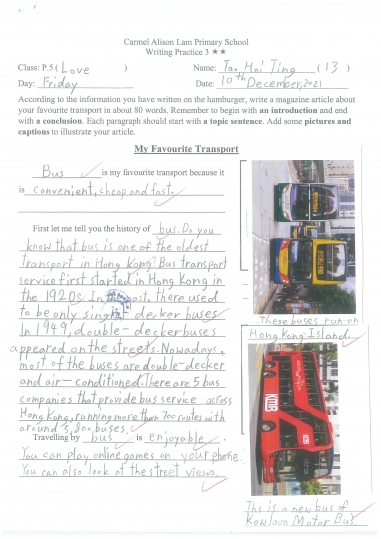 Carmel Alison Lam Primary School
Writing Practice 3 ★★
Class: P.5 ( Love ) Name: Tao Hoi Ting ( 13 )
Day: Friday Date: 10th December, 2021
According to the information you have written on the hamburger, write a magazine article about
your favourite transport in about 80 words. Remember to begin with an introduction and end
with a conclusion. Each paragraph should start with a topic sentence. Add some pictures and
captions to illustrate your article.
My Favourite Transport
Bus is my favourite transport because it
is convenient, cheap and fast.
First let me tell you the history of bus. Do you
know that bus is one of the oldest
transport in Hong Kong? Bus transport
service first started in Hong Kong in
the 1920s. In the past, there used
to be only single-decker buses
In 1949, double-decker buses
appeared on the streets. Nowadays,
most of the buses are double-decker
and air-conditioned. There are 5 bus
companies that provide bus service across
Hong Kong, running more than 700 routes with
around 5,800 buses.
Travelling by bus is enjoyable.
You can play online games on your phone.
You can also look at the street views.
These buses run on
Hong Kong Island.
This is a new bus of
Kowloon Motor Bus.